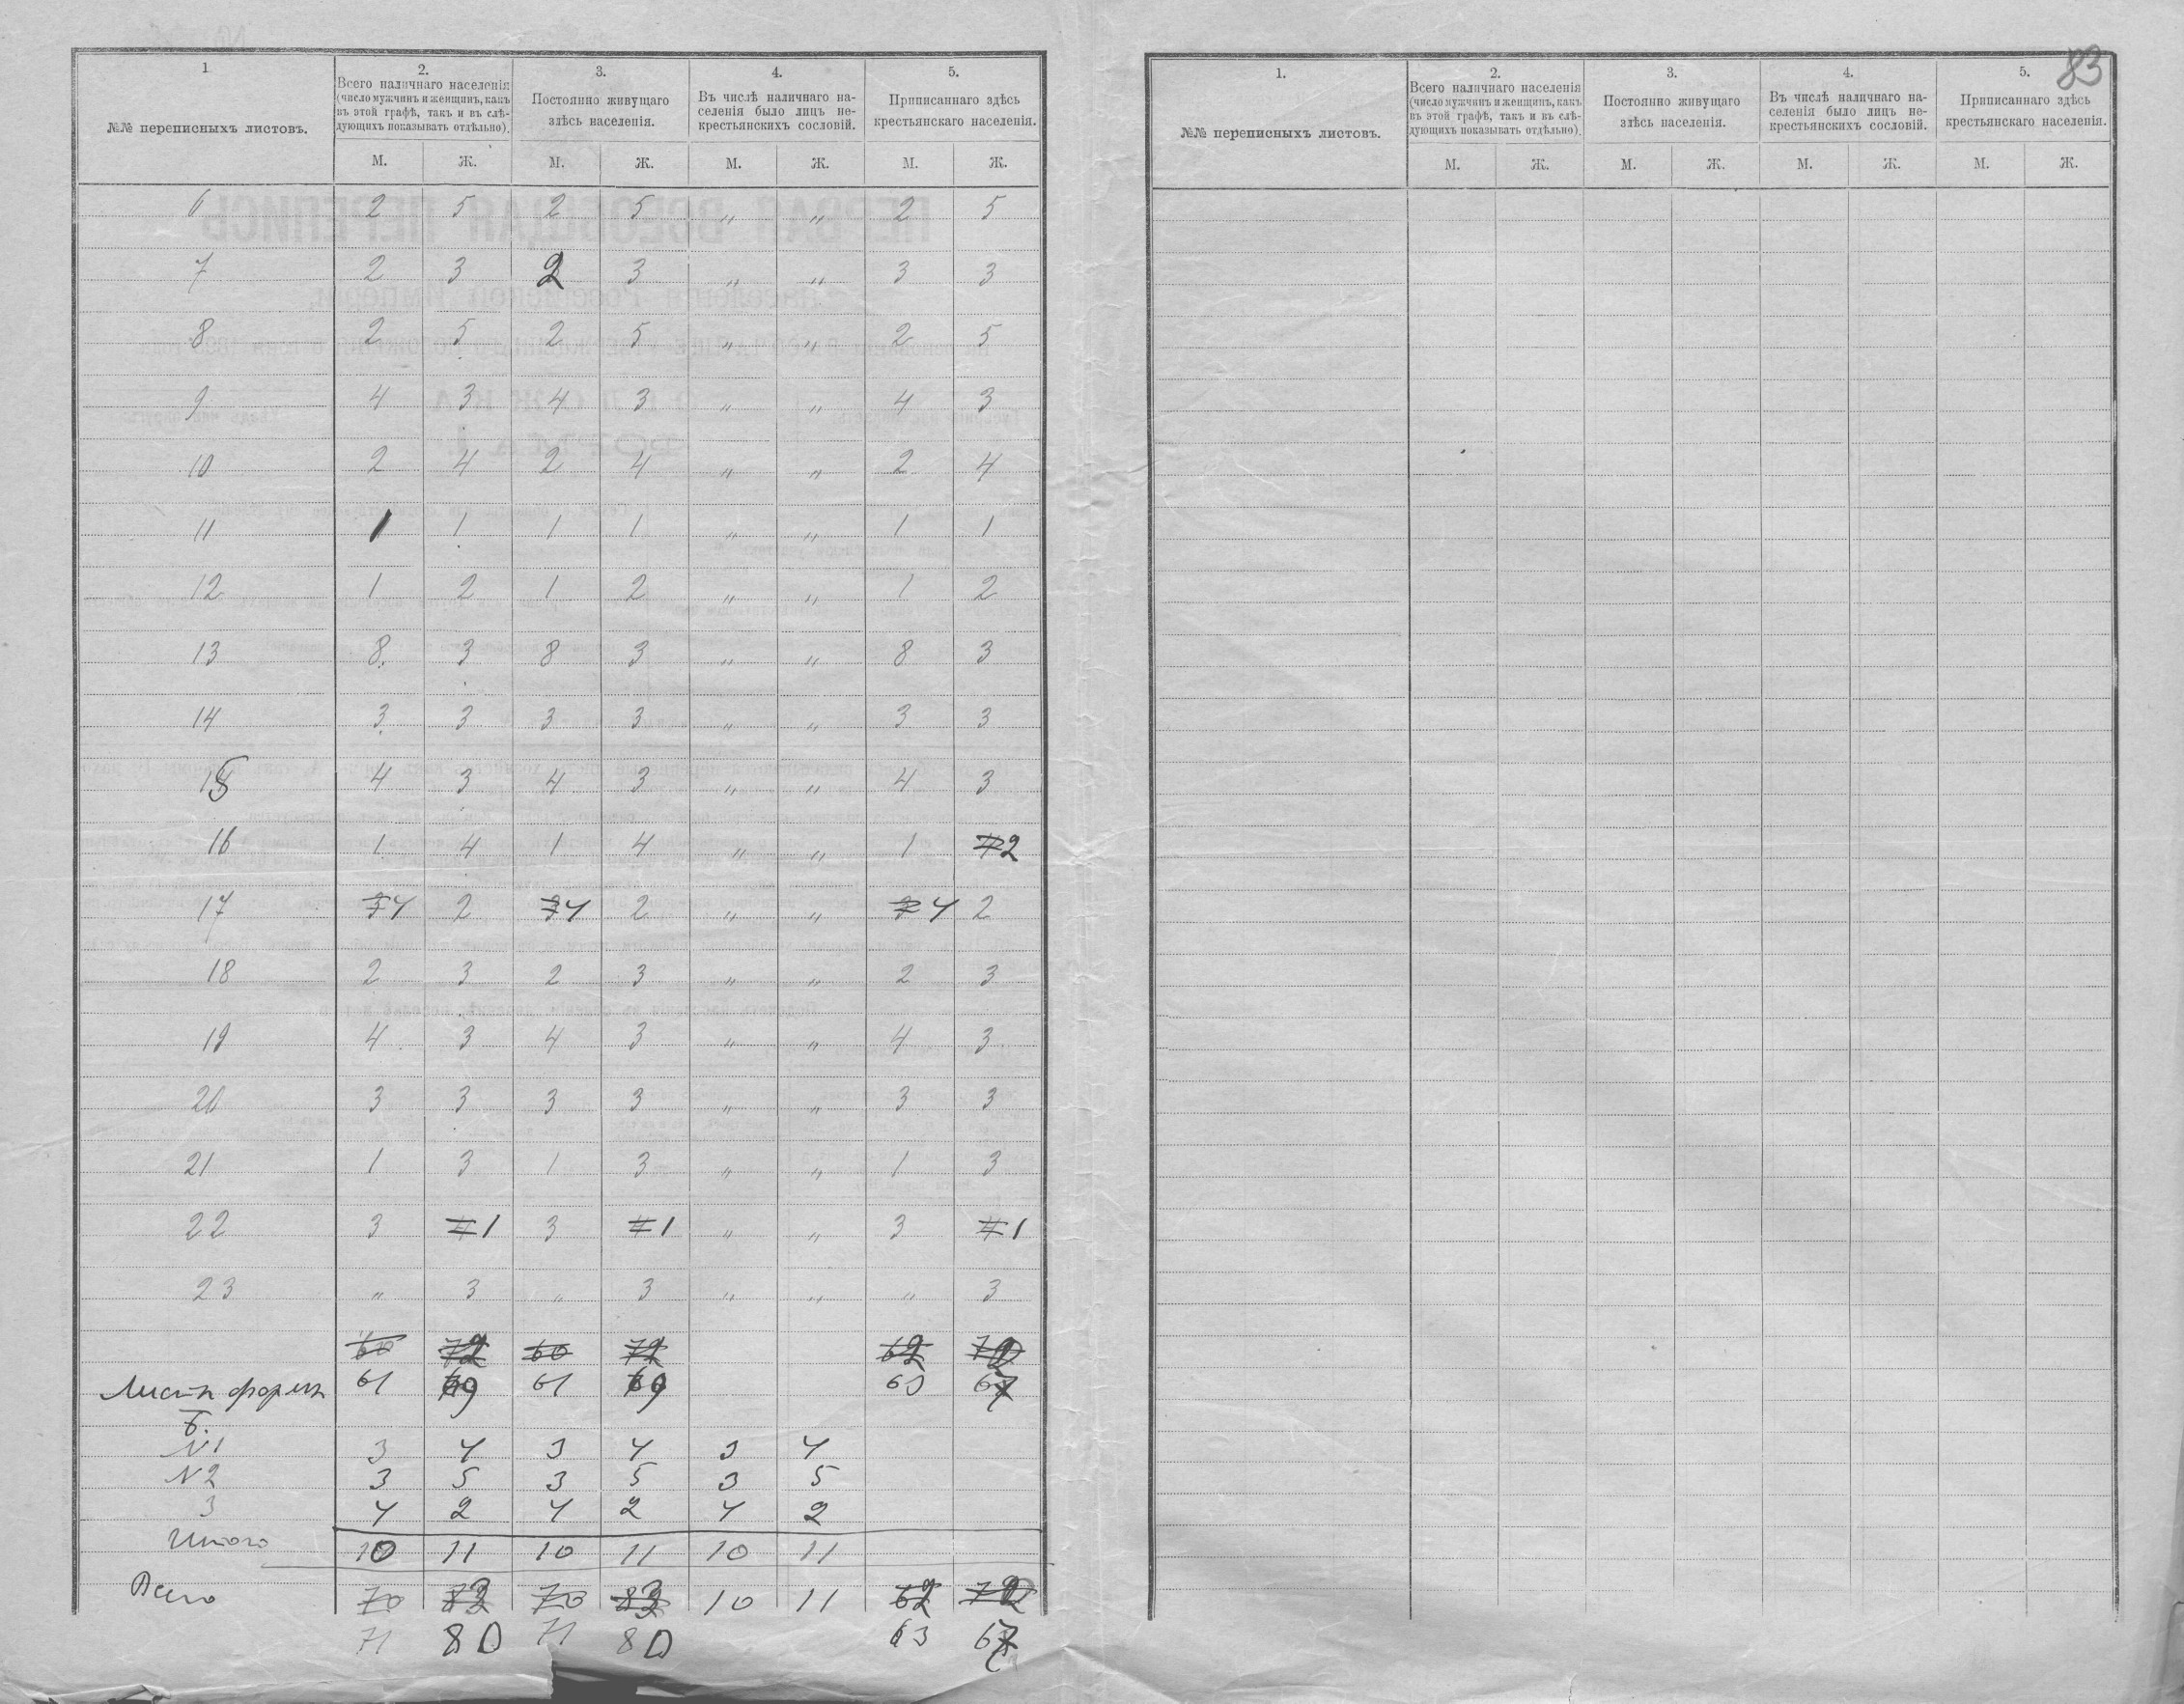 83
1 2. 3. 4. 5.
№№ переписныхъ листовъ.
Всего наличнаго населенія
(число мужчинъ и женщинъ, какъ
въ этой графѣ, такъ и въ слѣ-
дующихъ показывать отдѣльно).
Постоянно живущаго
здѣсь населенія.
Въ числѣ наличнаго на-
селенія было лицъ не-
крестьянскихъ сословій.
Приписаннаго здѣсь
крестьянскаго населенія.
М. Ж. М. Ж. М. Ж. М. Ж.
6 2 5 2 5 " " 2 5
7 2 3 2 3 " " 3 3
8 2 5 2 5 " " 2 5
9 4 3 4 3 " " 4 3
10 2 4 2 4 " " 2 4
11 1 1 1 1 " " 1 1
12 1 2 1 2 " " 1 2
13 8 3 8 3 " " 8 3
14 3 3 3 3 " " 3 3
15 4 3 4 3 " " 4 3
16 1 4 1 4 " " 1 2
17 4 2 4 2 " " 4 2
18 2 3 2 3 " " 2 3
19 4 3 4 3 " " 4 3
20 3 3 3 3 " " 3 3
21 1 3 1 3 " " 1 3
22 3 1 3 1 " " 3 1
23 " 3 " 3 " " " 3
60 72 60 72 62 72
Листы формы 61 69 61 69 63 67
Б.
№1 3 4 3 4 3 4
№2 3 5 3 5 3 5
3 4 2 4 2 4 2
Итого 10 11 10 11 10 11
Всего 70 83 70 83 10 11 62 72
71 80 71 80 63 67
1. 2. 3. 4. 5.
№№ переписныхъ листовъ.
Всего наличнаго населенія
(число мужчинъ и женщинъ, какъ
въ этой графѣ, такъ и въ слѣ-
дующихъ показывать отдѣльно).
Постоянно живущаго
здѣсь населенія.
Въ числѣ наличнаго на-
селенія было лицъ не-
крестьянскихъ сословій.
Приписаннаго здѣсь
крестьянскаго населенія.
М. Ж. М. Ж. М. Ж. М. Ж.